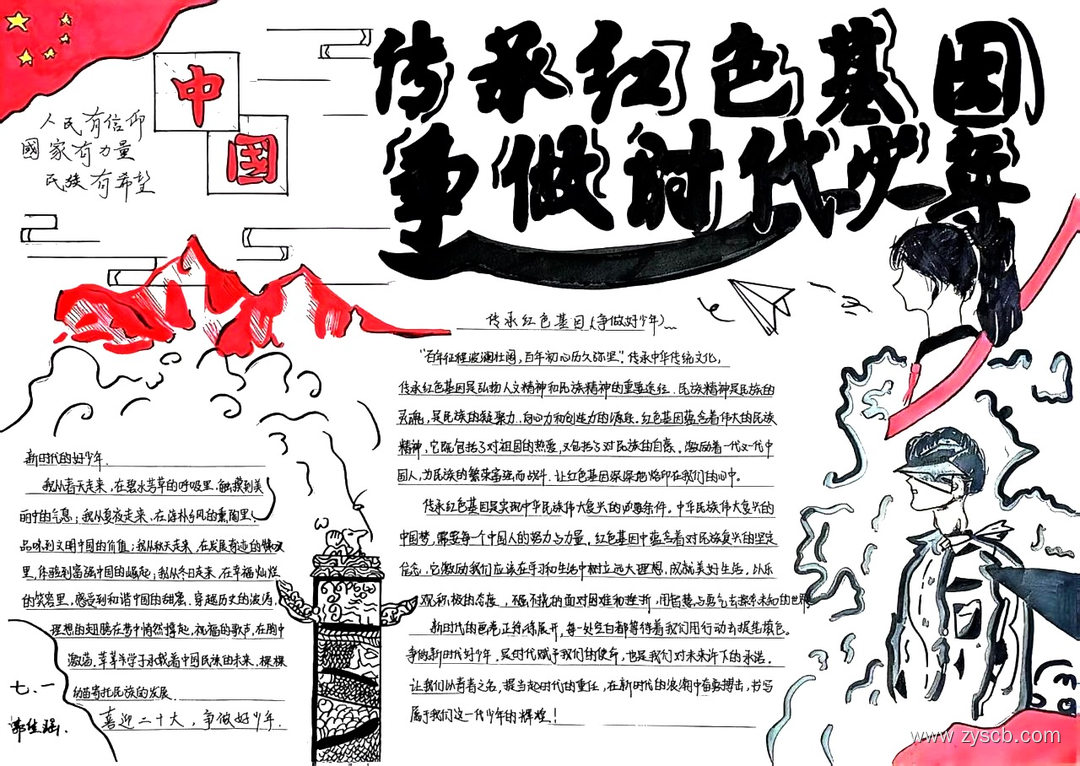 传承红色基因
争做时代少年
中
国
人民有信仰
國家有力量
民族有希望
传承红色基因(争做好少年)
"百年征程波澜壮阔,百年初心历久弥坚".传承中华传统文化,
传承红色基因是弘扬人文精神和民族精神的重要途径.民族精神是民族的
灵魂,是民族的凝聚力.向心力和创造力的源泉.红色基因蕴含着伟大的民族
精神,它既包括了对祖国的热爱,又包括了对民族的自豪.激励着一代又一代中
国人,为民族的繁荣富强而战斗.让红色基因深深地烙印在我们的心中。
传承红色基因是实现中华民族伟大复兴的必要条件。中华民族伟大复兴的
中国梦,需要每一个中国人的努力与力量。红色基因中蕴含着对民族复兴的坚定
信念,它激励我们应该在学习和生活中树立远大理想,成就美好生活。以乐
观积极的态度,不屈不挠的面对困难和挫折,用智慧与勇气去探索未知的世界
新时代的画卷正徐徐展开,每一处空白都等待着我们用行动去描绘填色。
争做新时代好少年,是时代赋予我们的使命,也是我们对未来许下的承诺。
让我们以青春之名,担当起时代的重任,在新时代的浪潮中奋勇搏击,书写
属于我们这一代少年的辉煌!
新时代的好少年.
我从春天走来,在碧水芳草的呼吸里.触摸到美
丽中的气息;我从夏夜走来,在淳朴乡风的熏陶里,
品味到文明中国的价值;我从秋天走来,在发展奇迹的
里,体验到富强中国的崛起;我从冬日走来,在幸福灿烂
的笑容里,感受到和谐中国的甜蜜.穿越历史的波涛,
理想的翅膀在梦中悄然撑起,祝福的歌声,在胸中
激荡.莘莘学子承载着中国民族的未来,棵棵
幼苗寄托民族的发展.
喜迎二十大,争做好少年.
七.一
www.zyscb.com